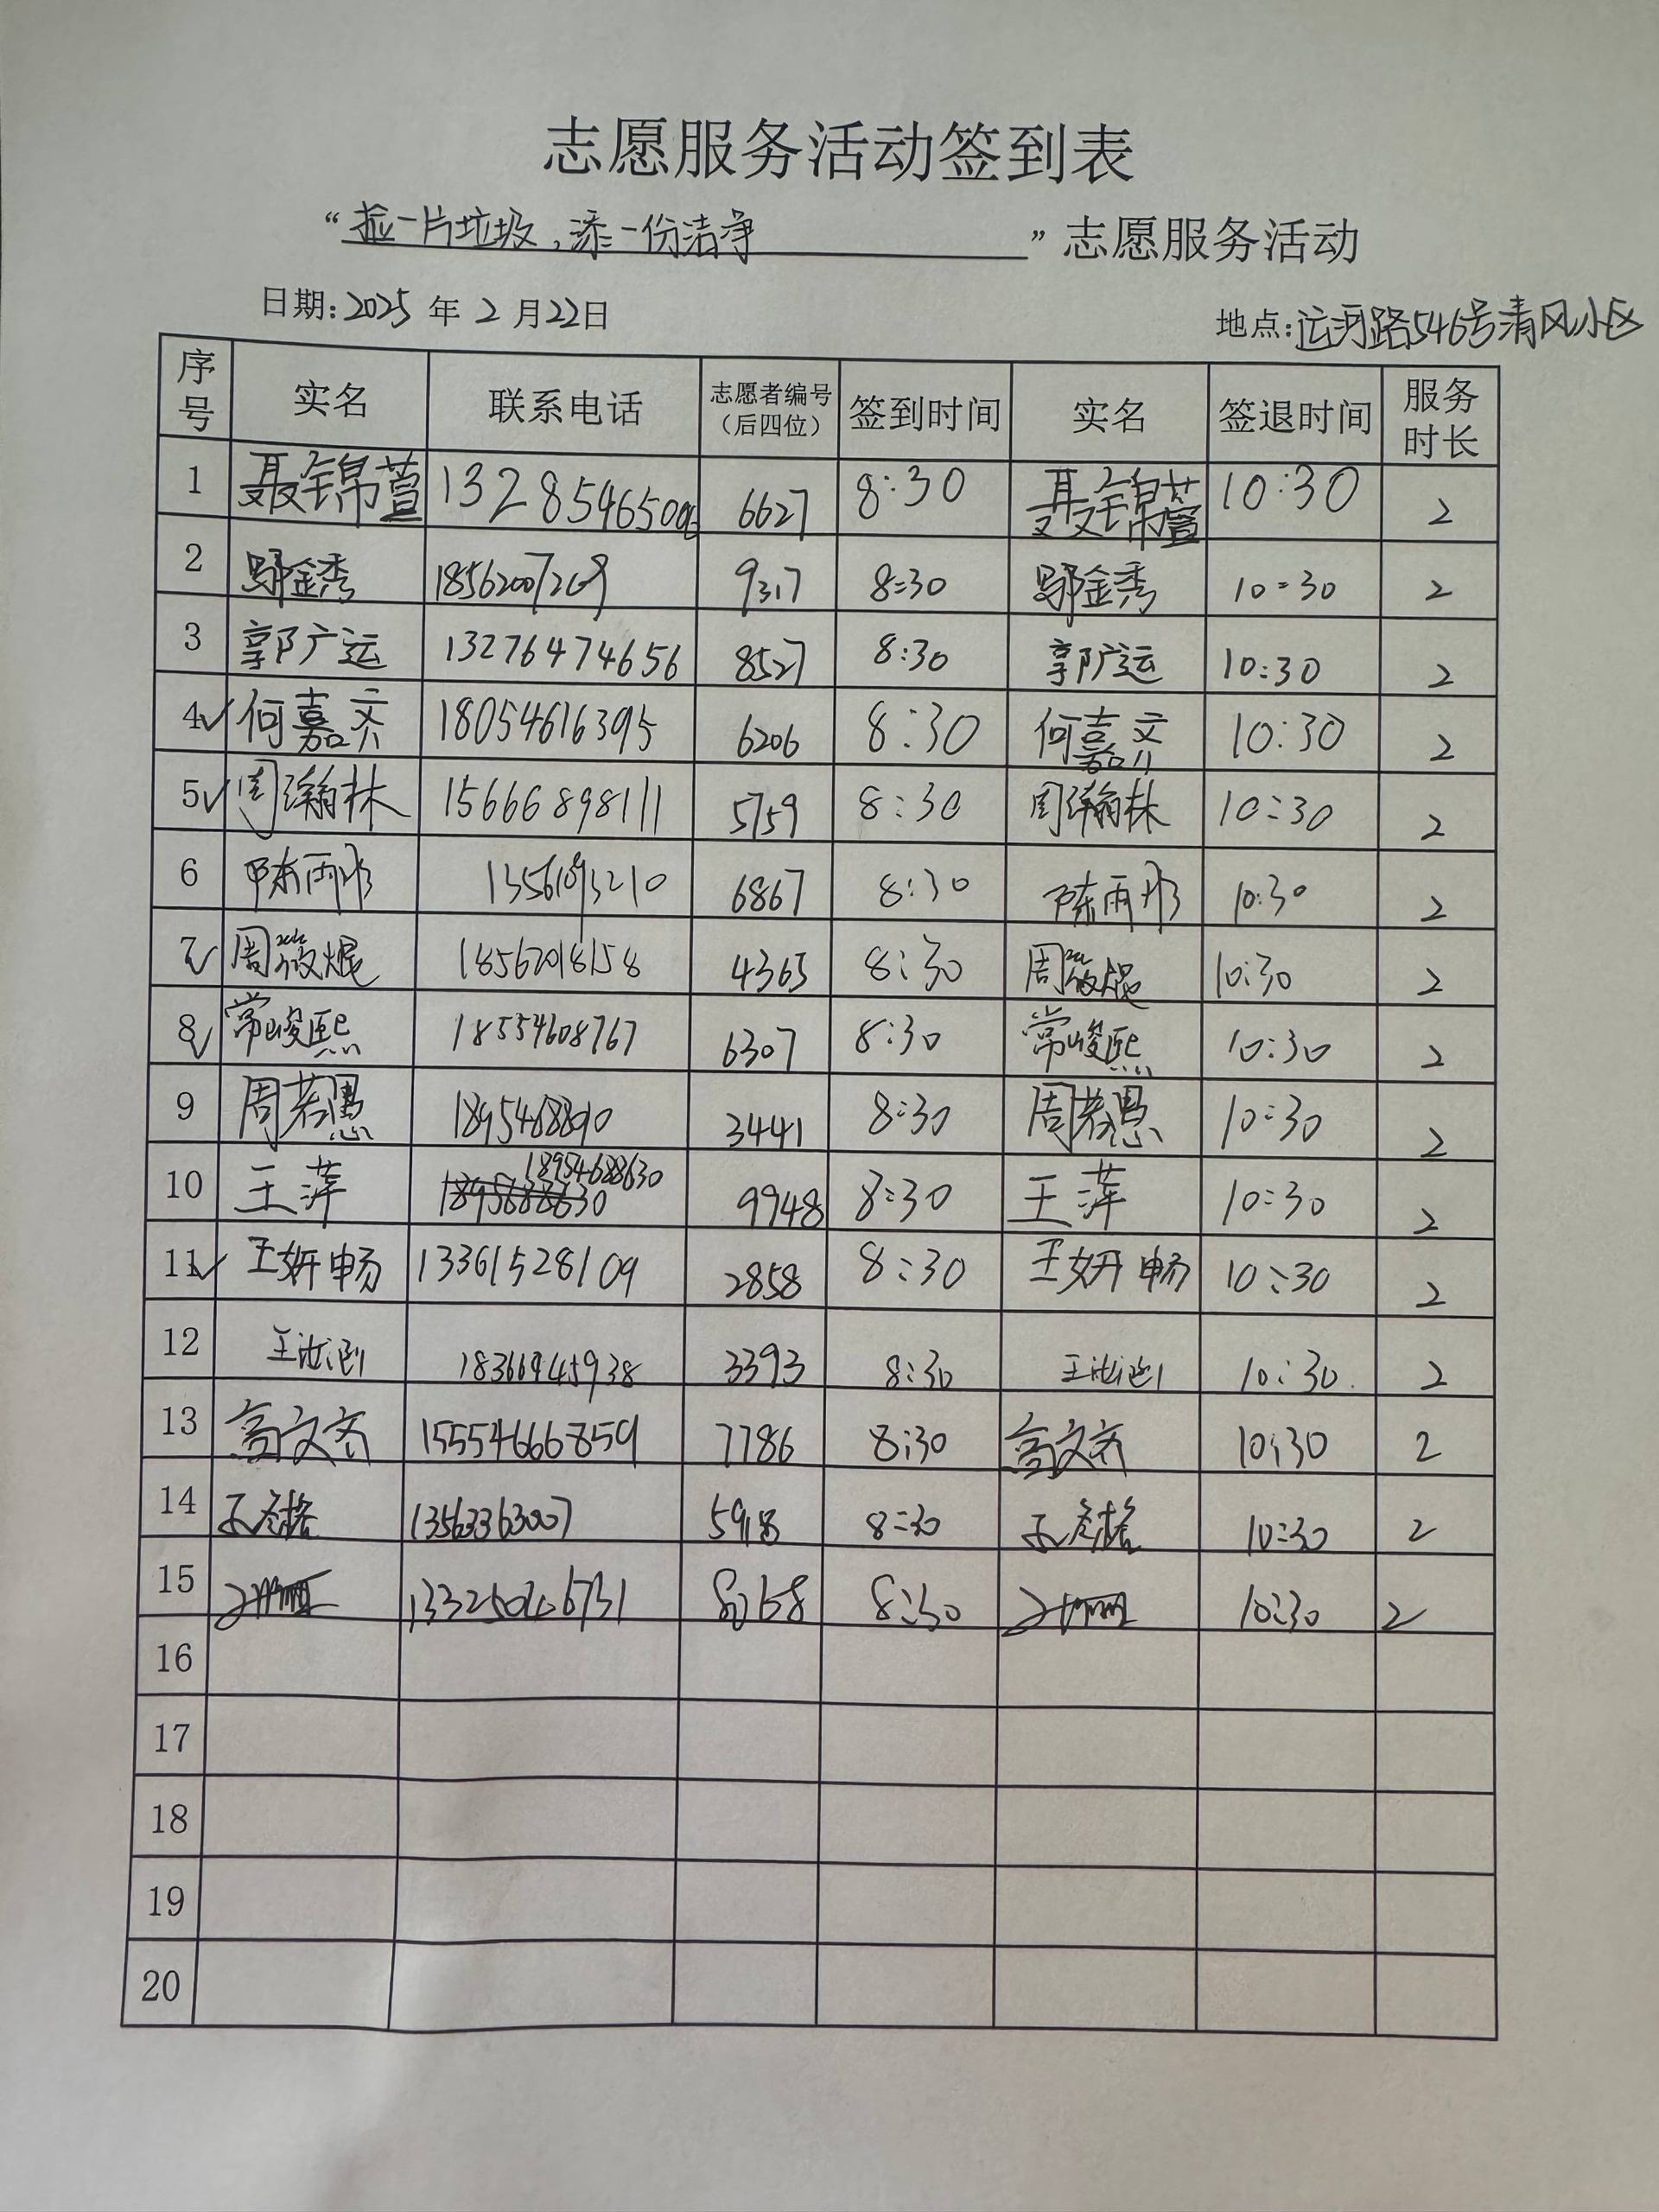 志愿服务活动签到表
“捡一片垃圾,添一份洁净”志愿服务活动
日期:2025年2月22日 地点:运河路546号清风小区
序号 实名 联系电话 志愿者编号(后四位) 签到时间 实名 签退时间 服务时长
1 聂锦萱 6627 8:30 聂锦萱 10:30 2
2 鄢金秀 9317 8:30 鄢金秀 10:30 2
3 郭广运 13276474656 8527 8:30 郭广运 10:30 2
4 何嘉齐 18054616395 6206 8:30 何嘉齐 10:30 2
5 周瀚林 15666898111 5759 8:30 周瀚林 10:30 2
6 陈雨彤 6867 8:30 陈雨彤 10:30 2
7 周筱焜 18562018158 4365 8:30 周筱焜 10:30 2
8 常峻熙 18554608767 6307 8:30 常峻熙 10:30 2
9 周若愚 3441 8:30 周若愚 10:30 2
10 王萍 18954688630 9948 8:30 王萍 10:30 2
11 王妍畅 13361528109 2858 8:30 王妍畅 10:30 2
12 3393 8:30 10:30 2
13 高文齐 15554666859 7786 8:30 高文齐 10:30 2
14 13563363007 5918 8:30 10:30 2
15 8:30 10:30 2
16
17
18
19
20